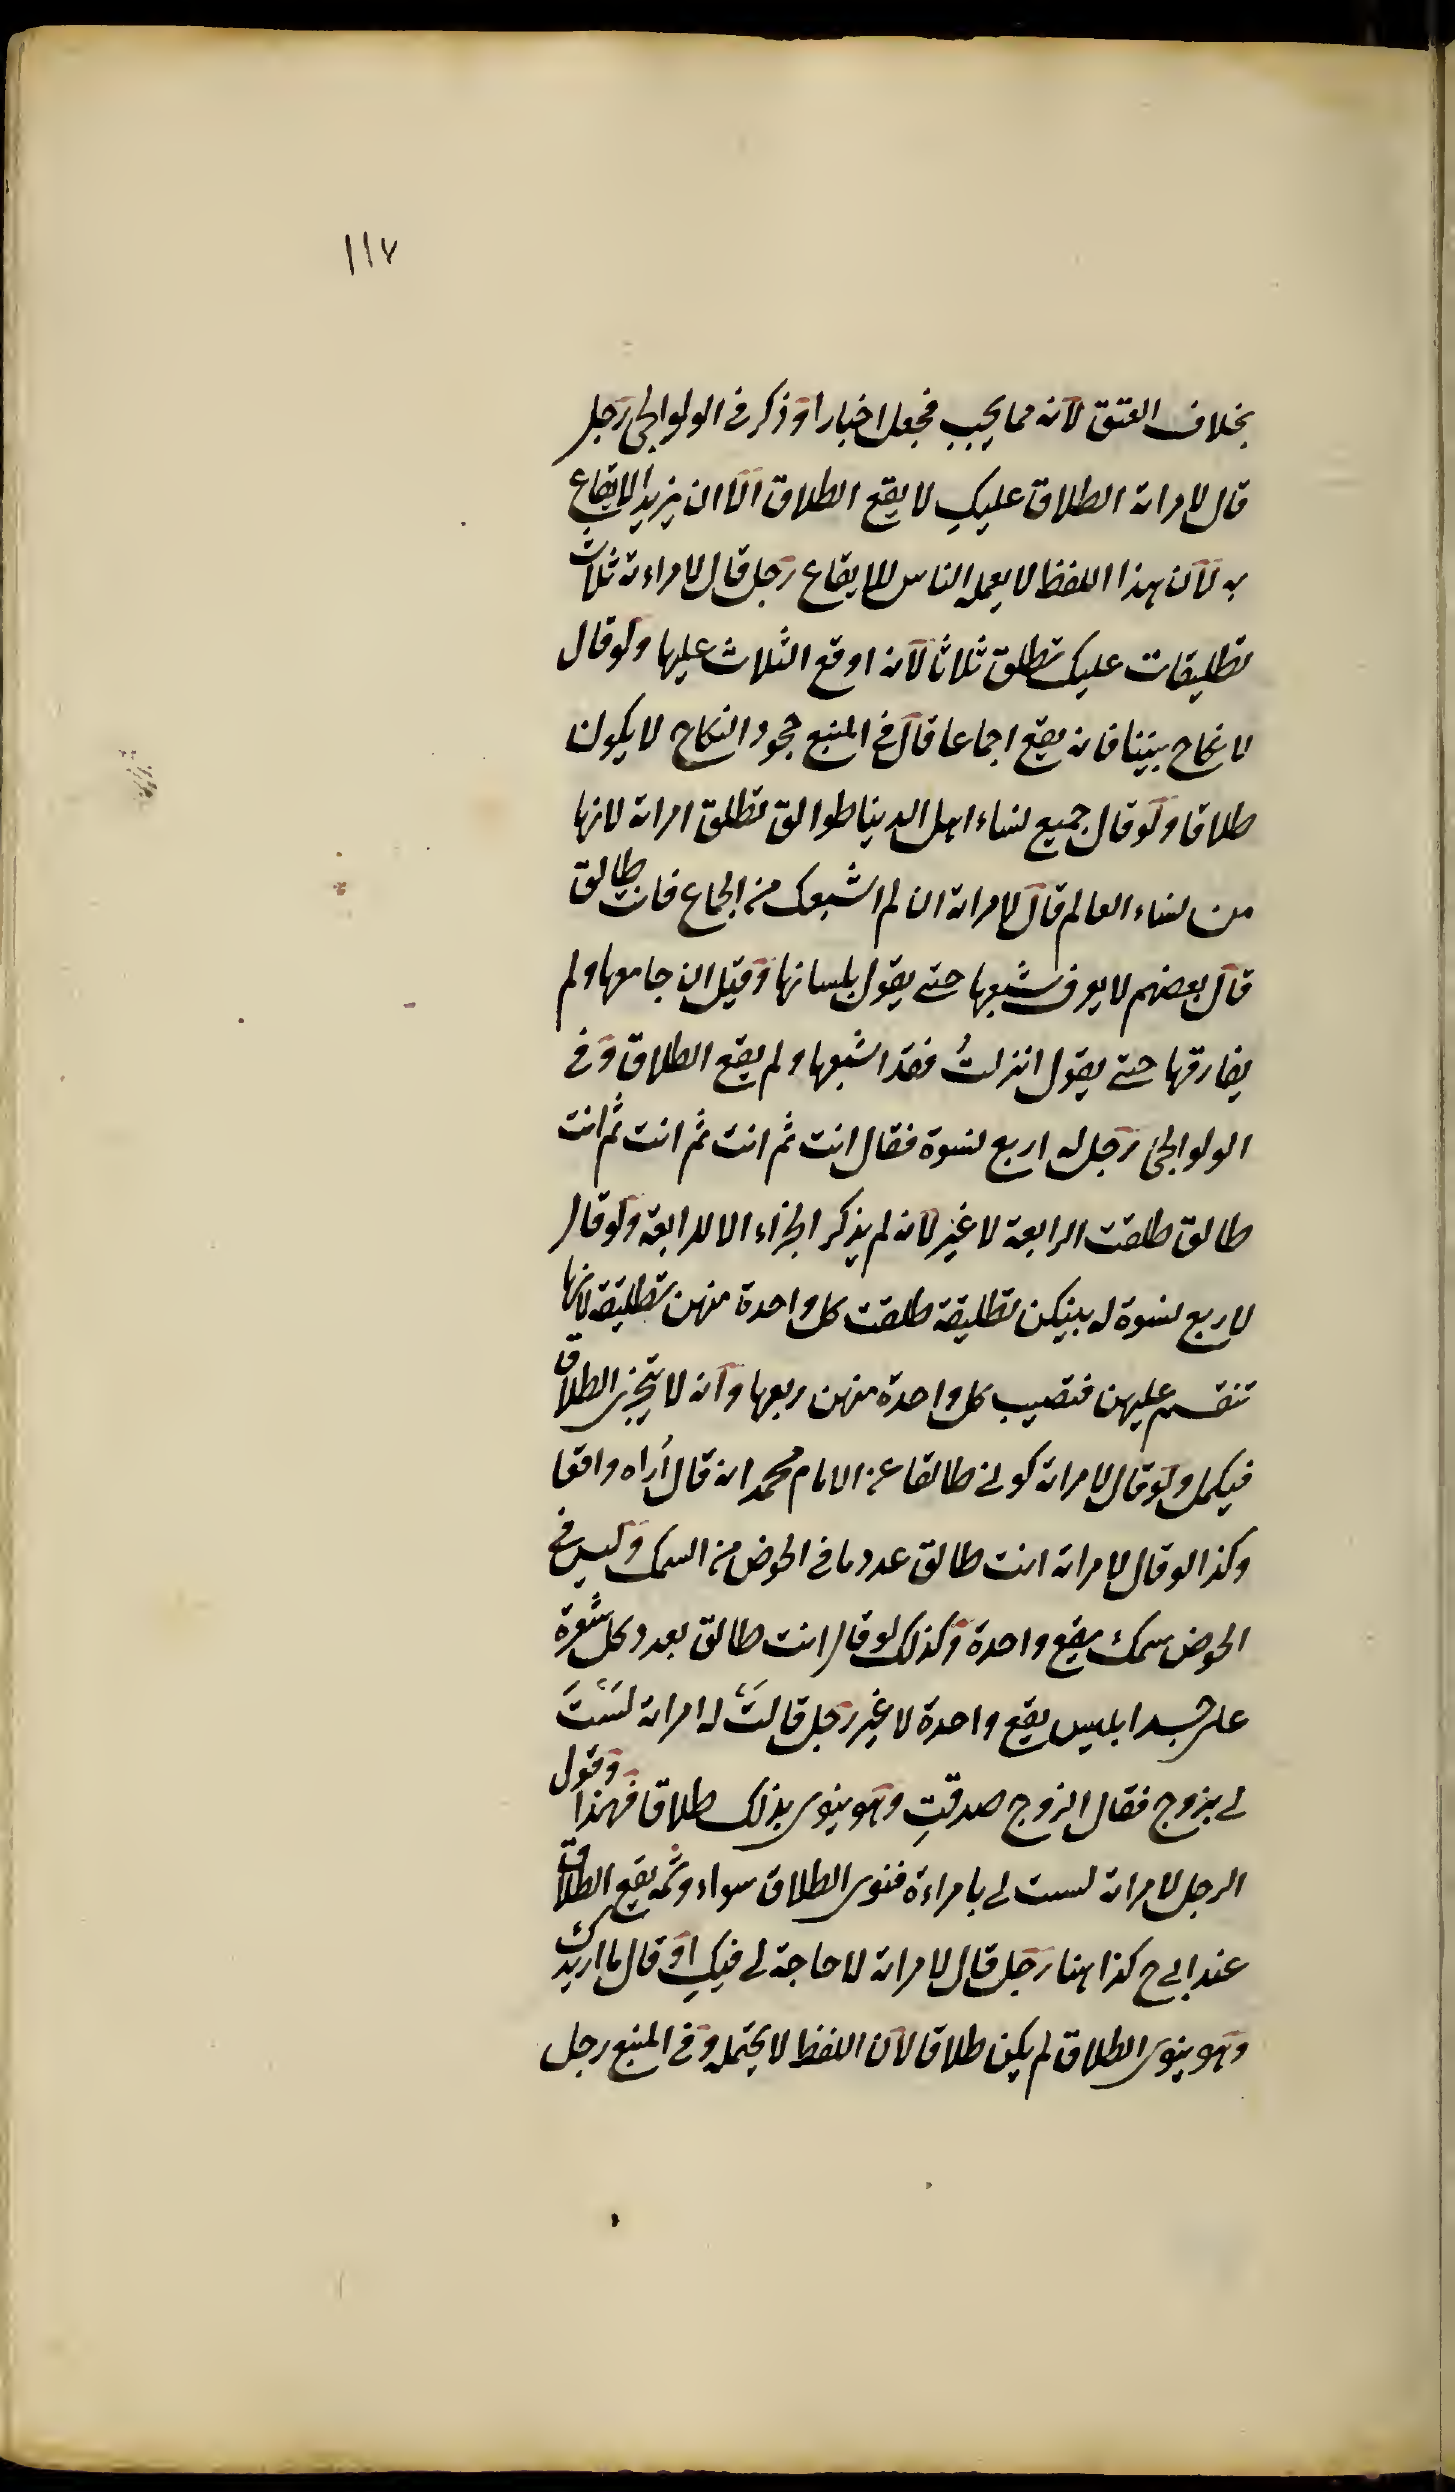 ١١٧
بخلاف العتق لانه مما يجب فجعل اخبارا وذكر فى الولوالجى رجل
قال لامراته الطلاق عليكِ لا يقع الطلاق الا ان يزيد الايقاع
به لان هذا اللفظ لا يعمله الناس للايقاع رجل قال لامراءته ثلاث
تطليقات عليك تطلق ثلاثا لانه اوقع الثلاث عليها ولو قال
لا نكاح بيننا فانه يقع اجماعا قال فى المنبع جحود النكاح لا يكون
طلاقا ولو قال جميع نساء اهل الدينا طوالق تطلق امراته لانها
من نساء العالم قال لامراته ان لم اشبعك من الجماع فانت طالق
قال بعضهم لا يعرف شبعها حتى يقول بلسانها وقيل ان جامعها ولم
يفارقها حتى يقول انزلتُ فقد اشبعها ولم يقع الطلاق وفى
الولوالجى رجل له اربع نسوة فقال انت ثم انت ثم انت ثم انت
طالق طلقت الرابعة لا غير لانه لم يذكر الجزاء الا للرابعة ولو قال
لاربع نسوة له بينكن تطليقة طلقت كل واحدة منهن بتطليقة لانها
تنقسم عليهن فتصيب كل واحدة منهن ربعها وانه لا يتجزى الطلاق
فيكمل ولو قال لامراته كونى طالقا عن الامام محمد انه قال اُراه واقعا
وكذا لو قال لامراته انت طالق عدد ما فى الحوض من السمك وليس فى
الحوض سمك يقع واحدة وكذلك لو قال انت طالق بعدد كل شعرة
على جسد ابليس يقع واحدة لا غير رجل قالت له امراته لستَ
لى بزوج فقال الزوج صدقتِ وهو ينوى بذلك طلاقا فهذا وقول
الرجل لامراته لست لى بامراءة فنوى الطلاق سواء وثمه يقع الطلاق
عند ابى ح كذا هنا رجل قال لامراته لا حاجة لى فيكِ او قال ما اريدك
وهو ينوى الطلاق لم يكن طلاقا لان اللفظ لا يحتمله وفى المنبع رجل